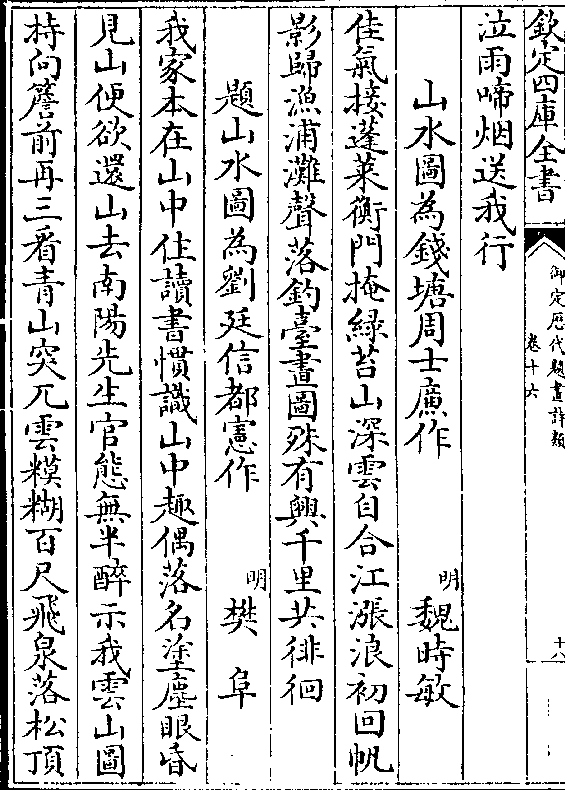 欽定四庫全書
御定歷代題畫詩類
卷十六
十八
泣雨啼烟送我行
山水圖為錢塘周士廉作
明
魏時敏
佳氣接蓬萊衡門掩綠苔山深雲自合江漲浪初回帆
影歸漁浦灘聲落釣臺畫圖殊有興千里共徘徊
題山水圖為劉廷信都憲作
明
樊阜
我家本在山中住讀書慣識山中趣偶落名塗塵眼昏
見山便欲還山去南陽先生官態無半醉示我雲山圖
持向簷前再三看青山突兀雲糢糊百尺飛泉落松頂